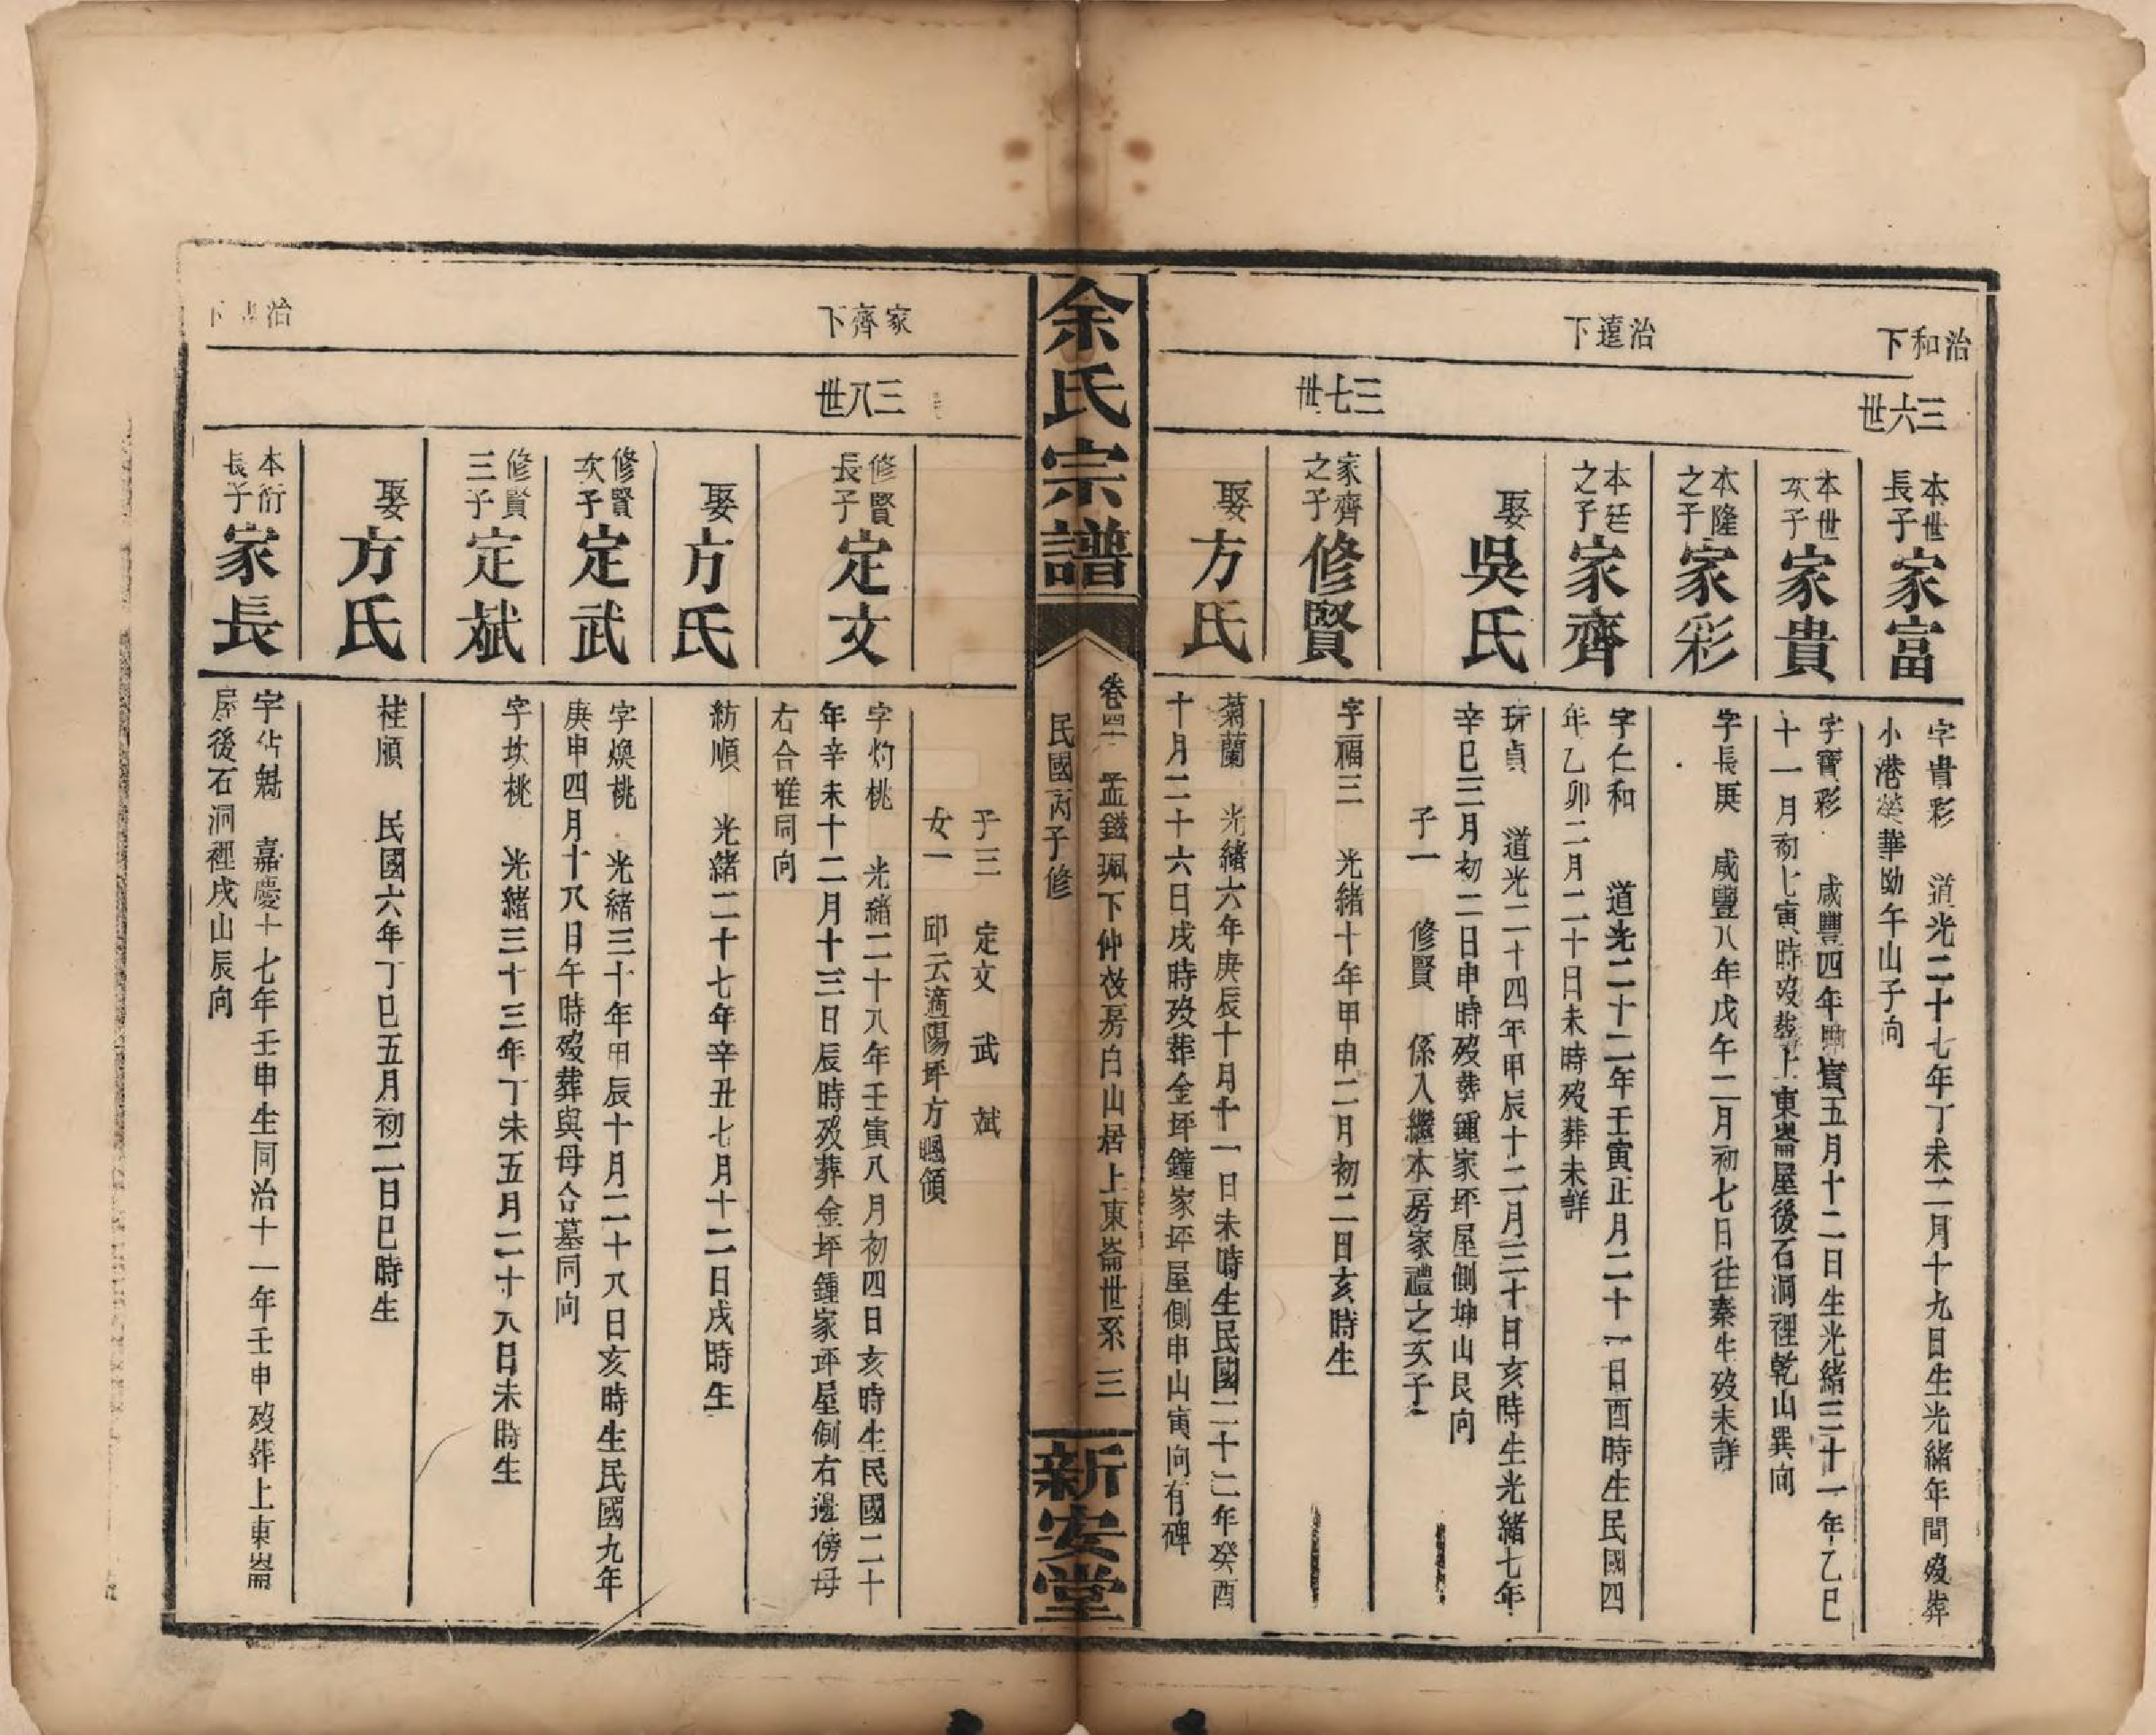 治和下
三六世
本世長子
家富
字貴彩 道光二十七年丁未二月十九日生光緒年間歿葬
小港 華坳午山子向
本世次子
家貴
字寶彩 咸豐四年 寅五月十二日生光緒三十一年乙巳
十一月初七寅時歿葬上東崙屋後石洞裡乾山巽向
本隆之子
家彩
字長庚 咸豐八年戊午二月初七日往秦生歿未詳
治遠下
本廷之子
家齊
字仁和 道光二十二年壬寅正月二十一日酉時生民國四
年乙卯二月二十日未時歿葬未詳
娶
吳氏
貞 道光二十四年甲辰十二月三十日亥時生光緒七年
辛巳三月初二日申時歿葬鍾家坪屋側坤山艮向
子一 修賢 係入繼本房家禮之次子
三七世
家齊之子
修賢
字福三 光緒十年甲申二月初二日亥時生
娶
方氏
菊蘭 光緒六年庚辰十月十一日未時生民國二十二年癸酉
十月二十六日戌時歿葬金坪鐘家坪屋側申山寅向有碑
余氏宗譜
卷四 孟鐩珮下仲 房白山居上東崙世系 三
民國丙子修
新安堂
子三 定文 武 斌
女一 邱云適陽坪方 頎
家齊下
三八世
修賢長子
定文
字灼桃 光緒二十八年壬寅八月初四日亥時生民國二十
年辛未十二月十三日辰時歿葬金坪鍾家坪屋側右邊傍母
右合堆同向
娶
方氏
紡順 光緒二十七年辛丑七月十二日戌時生
修賢次子
定武
字煥桃 光緒三十年甲辰十月二十八日亥時生民國九年
庚申四月十八日午時歿葬與母合墓同向
修賢三子
定斌
字坎桃 光緒三十三年丁未五月二十八日未時生
娶
方氏
桂順 民國六年丁巳五月初二日巳時生
治 下
本衍長子
家長
字佔魁 嘉慶十七年壬申生同治十一年壬申歿葬上東崙
屋後石洞裡戌山辰向